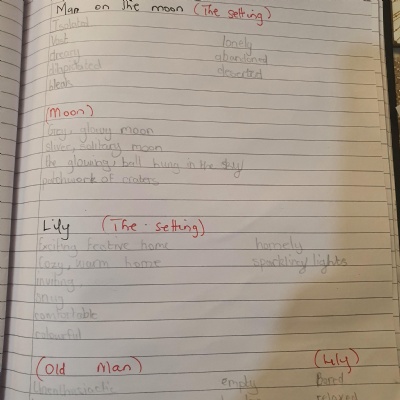 Man on the moon (The setting)
Isolated
lonely
dreary abandoned
dilapidated deserted
bleak
(Moon)
glowy moon
solitary moon
the glowing ball hung in the sky
patchwork of craters
Lily (The setting)
Exciting festive home homely
Cozy, warm home sparkling lights
inviting
snug
comfortable
colourful
(Old Man) (Lily)
Unenthusiastic empty Bored
relaxed